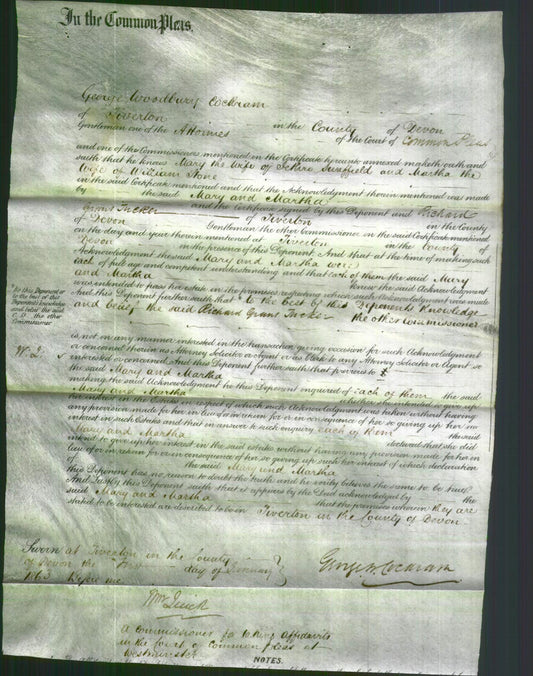 In the Common Pleas.
George Woodbury Cockram
of Tiverton in the County of Devon
Gentleman one of the Attornies of the Court of Common Pleas
and one of the Commissioners mentioned in the Certificate hereunto annexed maketh oath and
saith that he knows Mary the Wife of and Martha the
Wife of William Stone
in the said Certificate mentioned and that the Acknowledgment therein mentioned was made
by the said Mary and Martha
and the Certificate signed by this Deponent and Richard
Grant Tucker of Tiverton in the County
of Devon Gentleman the other Commissioner in the said Certificate mentioned
on the day and year therein mentioned at Tiverton in the County of
Devon in the presence of this Deponent And that at the time of making such
Acknowledgment the said Mary and Martha were
each of full age and competent understanding and that each of them the said Mary
and Martha knew the said Acknowledgment
was intended to pass her estate in the premises respecting which such Acknowledgment was made
And this Deponent further saith that to the best of this Deponents knowledge
and belief the said Richard Grant Tucker the other Commissioner
* Is this Deponent or
to the best of this
Deponent's knowledge
and belief the said
C. D. the other
Commissioner
is not in any manner interested in the transaction giving occasion for such Acknowledgment
or concerned therein as Attorney Solicitor or Agent or as Clerk to any Attorney Solicitor or Agent so
interested or concerned And this Deponent further saith that previous to
the said Mary and Martha
making the said Acknowledgment he this Deponent enquired of each of them the said
Mary and Martha whether she intended to give up
her interest in the estate in respect of which such Acknowledgment was taken without having
any provision made for her in lieu of or in return for or in consequence of her so giving up her
interest in such Estate and that in answer to such enquiry each of them the said
Mary and Martha declared that she did
intend to give up her interest in the said estate without having any provision made for her in
lieu of or in return for or in consequence of her so giving up such her interest of which declaration
of the said Mary and Martha
this Deponent has no reason to doubt the truth and he verily believes the same to be true
And Lastly this Deponent saith that it appears by the Deed acknowledged by the
said Mary and Martha that the premises wherein they are
stated to be interested are described to be in Tiverton in the County of Devon
Sworn at Tiverton in the County
of Devon the day of January
1863 Before me
George W Cockram
A Commissioner for taking Affidavits
in the Court of Common Pleas at
Westminster
NOTES.